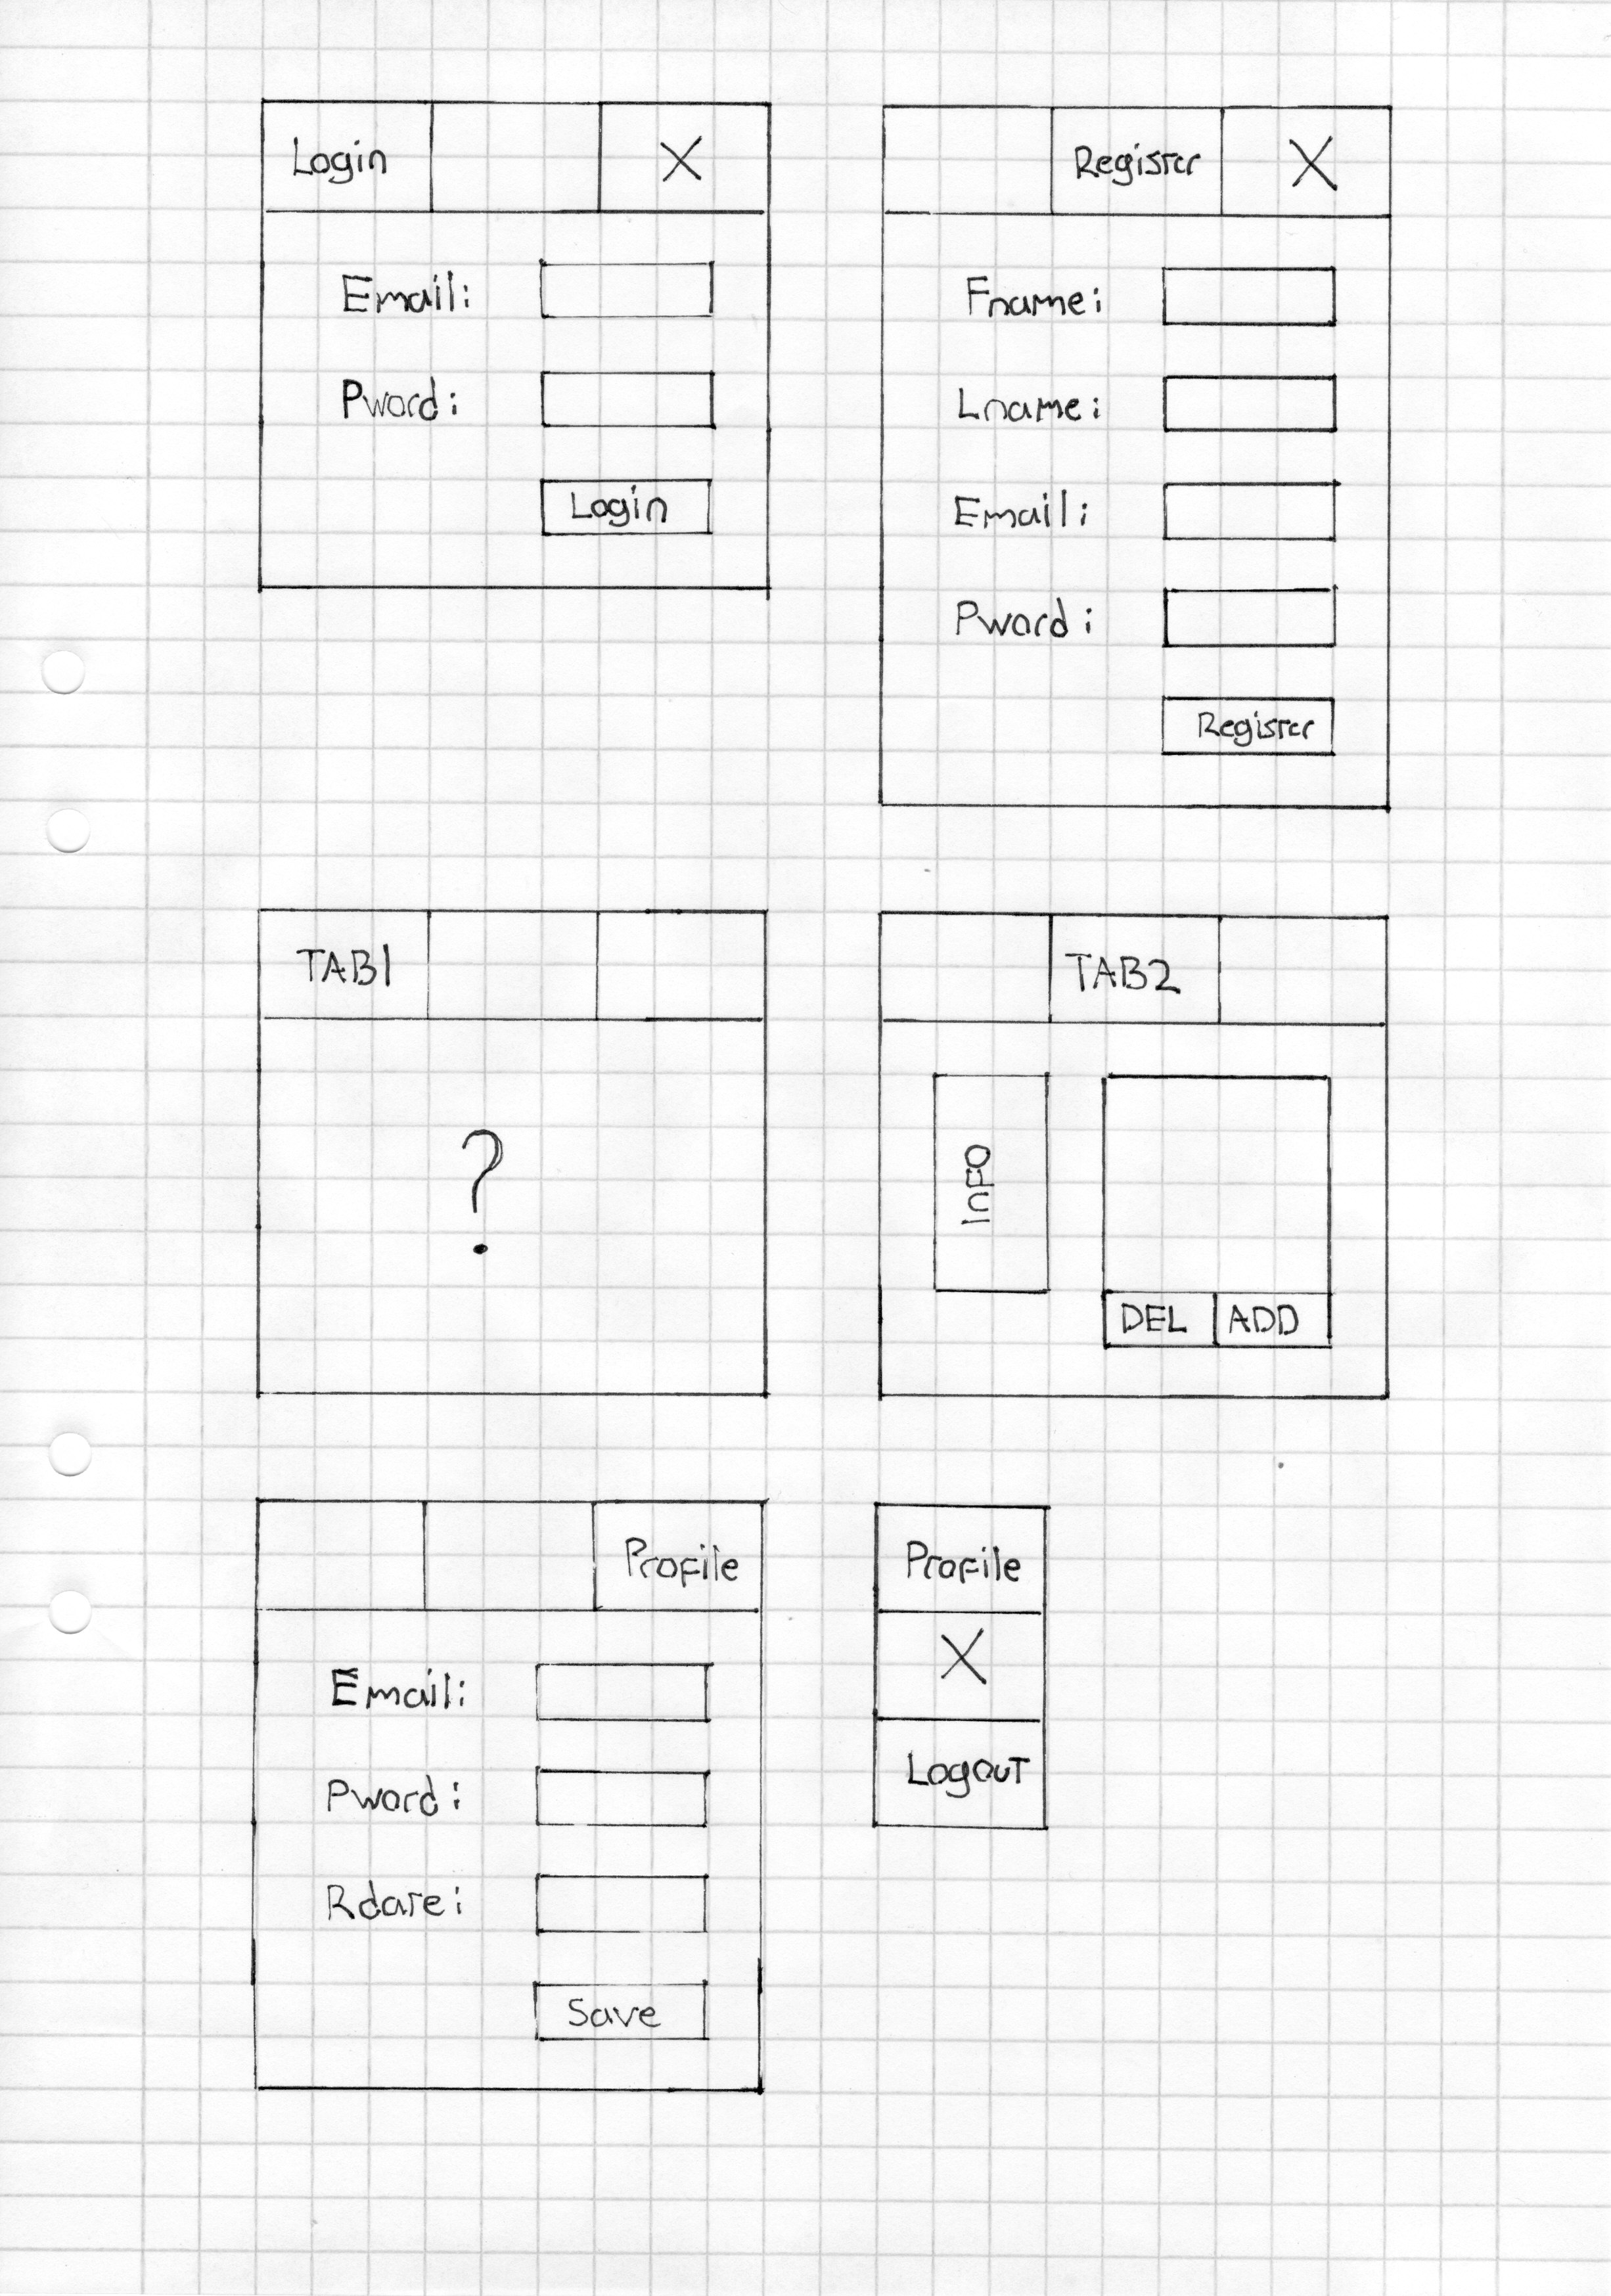 Login X
Email:
Pword:
Login
Register X
Fname:
Lname:
Email:
Pword:
Register
TAB1
?
TAB2
InFO
DEL ADD
Profile
Email:
Pword:
Rdate:
Save
Profile
X
Logout